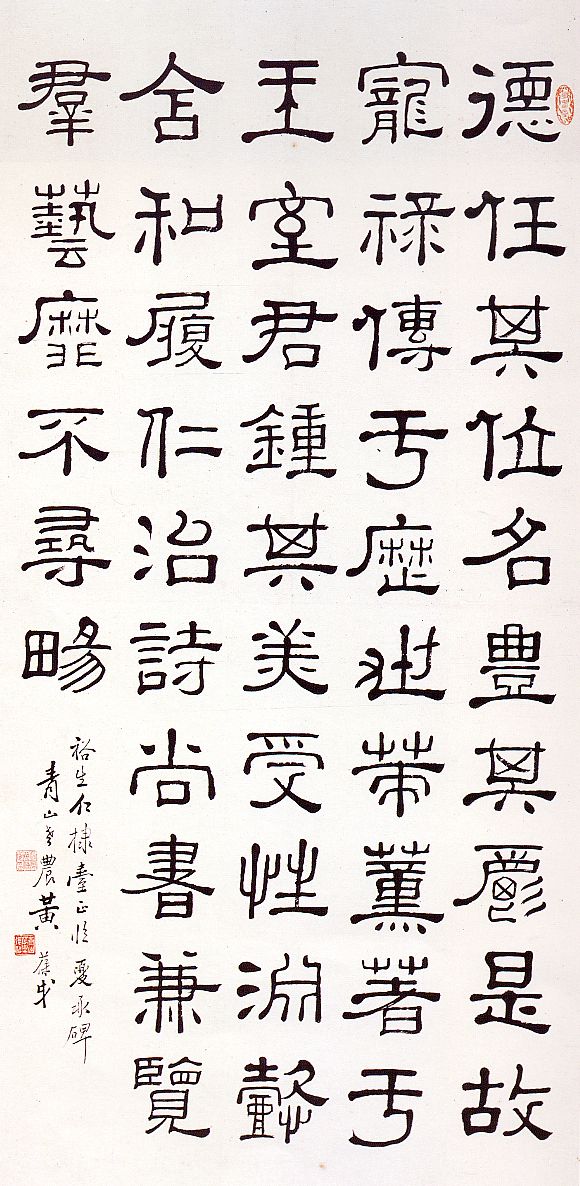 德任其位名豐其爵是故
寵祿傳亏歷世策薰著亏
王室君鍾其美受性淵懿
含和履仁治詩尚書兼覽
羣藝靡不尋畼
裕生仁棣臺正臨夏承碑
青山老農黃葆戉